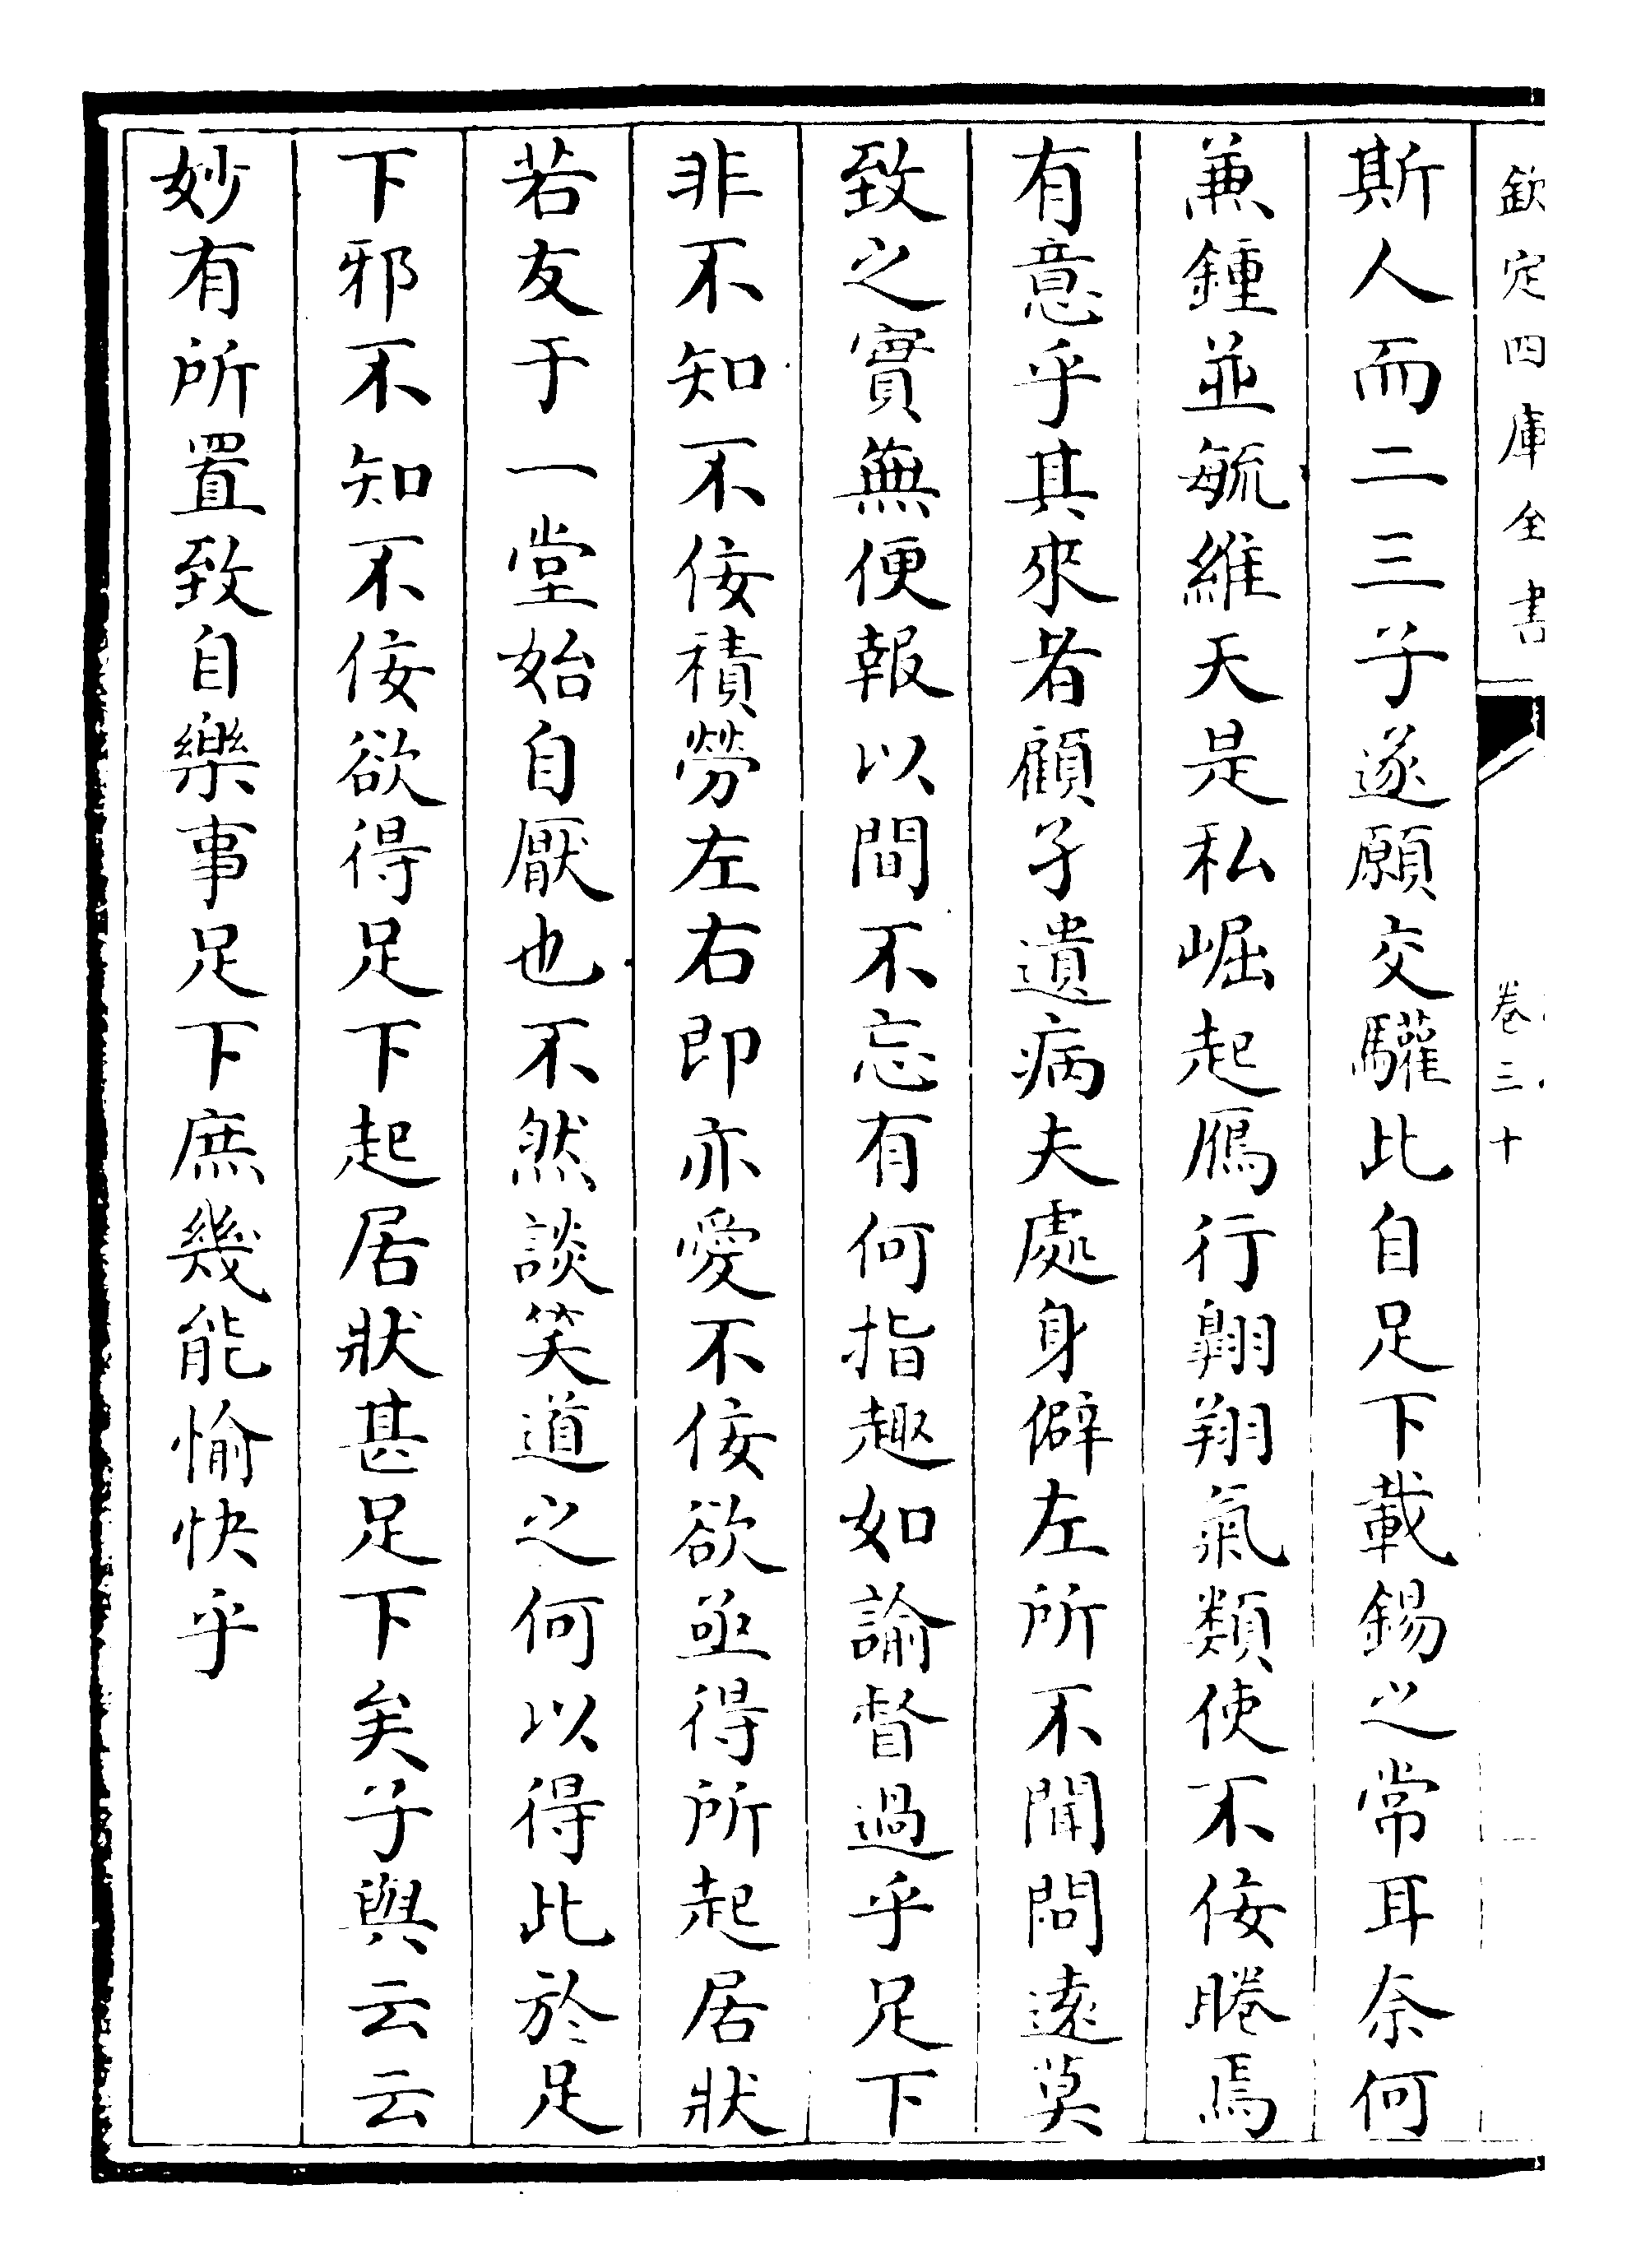 欽定四庫全書
卷三十
斯人而二三子遂願交驩比自足下載錫之常耳奈何
兼鍾並毓維天是私崛起鴈行翺翔氣類使不佞睠焉
有意乎其來者顧孑遺病夫處身僻左所不聞問遠莫
致之實無便報以間不忘有何指趣如諭督過乎足下
非不知不佞積勞左右即亦愛不佞欲亟得所起居狀
若友于一堂始自厭也不然談笑道之何以得此於足
下邪不知不佞欲得足下起居狀甚足下矣子與云云
妙有所置致自樂事足下庶幾能愉快乎